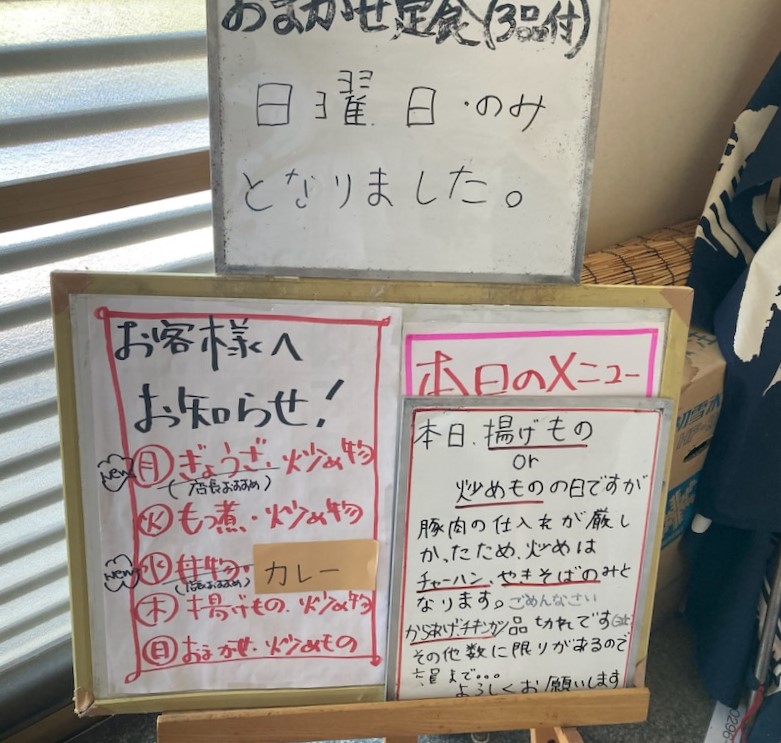 おまかせ定食(3品付)
日曜日・のみ
となりました。
お客様へ
お知らせ!
New 月 ぎょうざ・炒め物
(店長おすすめ)
火 もつ煮・炒め物
New 水 丼物・カレー
(店長おすすめ)
木 揚げもの・炒め物
日 おまかせ・炒めもの
本日のメニュー
本日、揚げもの
or
炒めものの日ですが
豚肉の仕入れが厳し
かったため、炒めは
チャーハン、やきそばのみと
なります。ごめんなさい
からあげ、チキンカツ品切れです
その他数に限りがあるので
まで...
よろしくお願いします